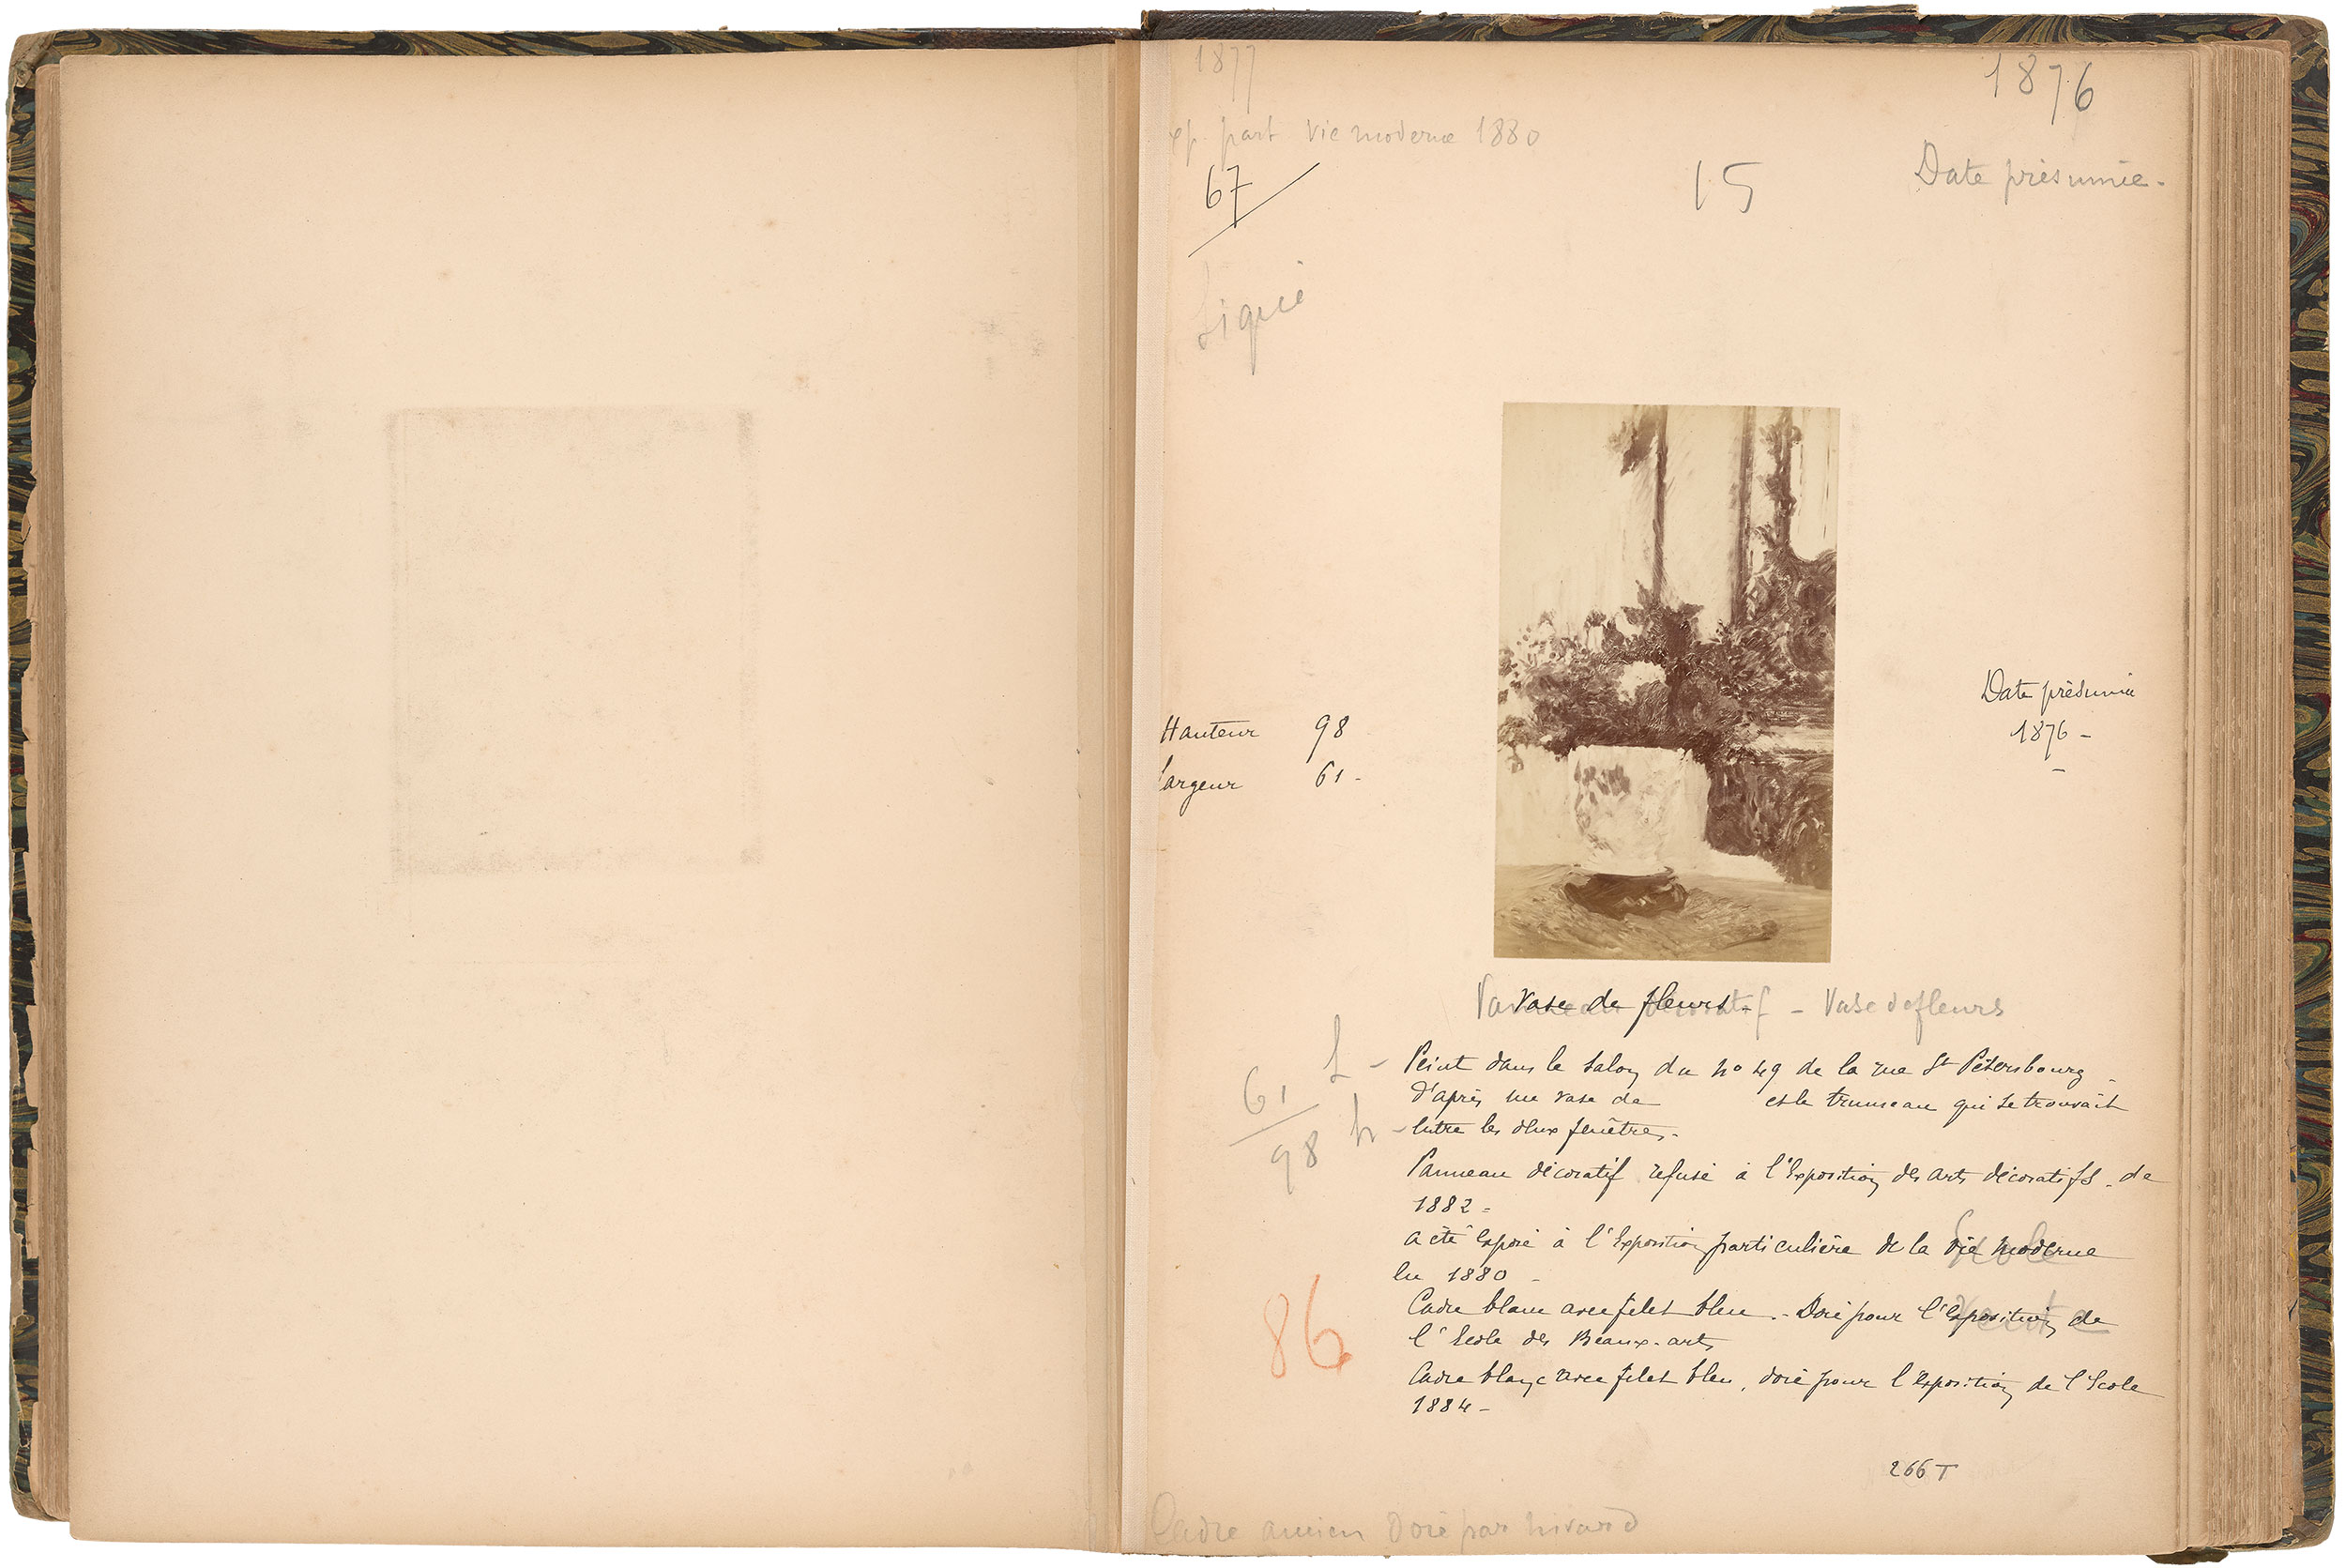 1877
1876
exp. part vie moderne 1880
67
15
Date présumée -
Signé
Date présumée
1876 -
Hauteur 98
largeur 61 -
Panneau décoratif - Vase de fleurs
Vase de fleurs
L - Peint dans le salon du nº 49 de la rue St Pétersbourg
61
d'après un vase de et le trumeau qui se trouvait
h - entre les deux fenêtres -
98
Panneau décoratif refusé à l'Exposition des arts décoratifs de
1882 -
a été exposé à l'Exposition particulière de la vie moderne
en 1880 -
Cadre blanc avec filet bleu - Doré pour l'Exposition de
l'Ecole des Beaux-arts
86
Cadre blanc avec filet bleu, doré pour l'Exposition de l'Ecole
1884 -
266 T
Cadre ancien doré par